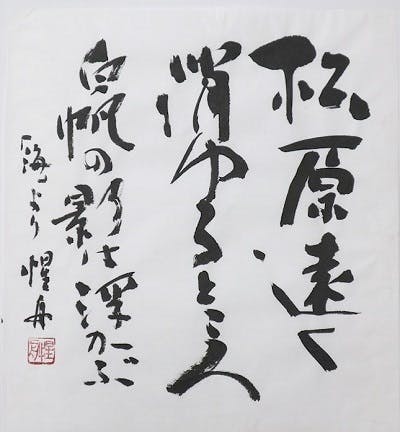 松原遠く
消ゆるところ
白帆の影は浮かぶ
海より 惺舟